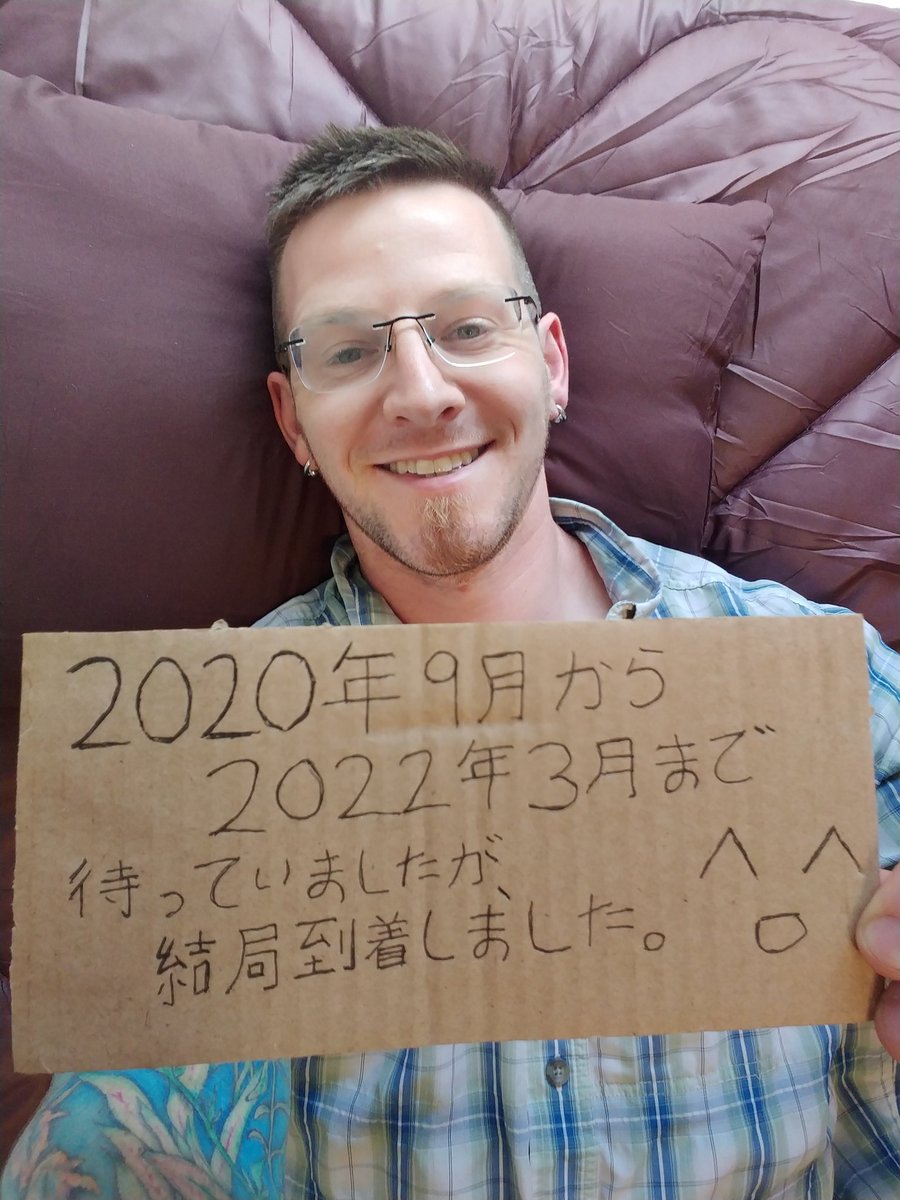 2020年9月から
2022年3月まで
待っていましたが、
結局到着しました。 ^o^